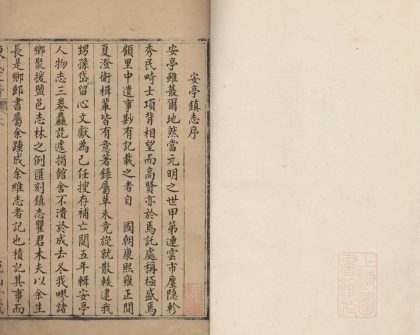 安亭鎮志序
安亭雖蕞爾地然當元明之世甲第連雲市廛隱軫
秀民畸士項背相望而高賢亦於焉託處稱極盛焉
顧里中遺事尠有記載之者自　國朝康熙雍正間
夏澄衡輯輩皆有意著錄屬草未竟旋就散軼逮我
甥孫岱留心文獻為己任搜存補亡閱五年輯安亭
人物志三卷麤訖遽捐館舍不潰於成去冬我嘐諸
鄉聚援鹽邑志林之例匯刻鎮志瞿君木夫以余生
長是鄉郵書屬余踵成余維志者記也積記其事而